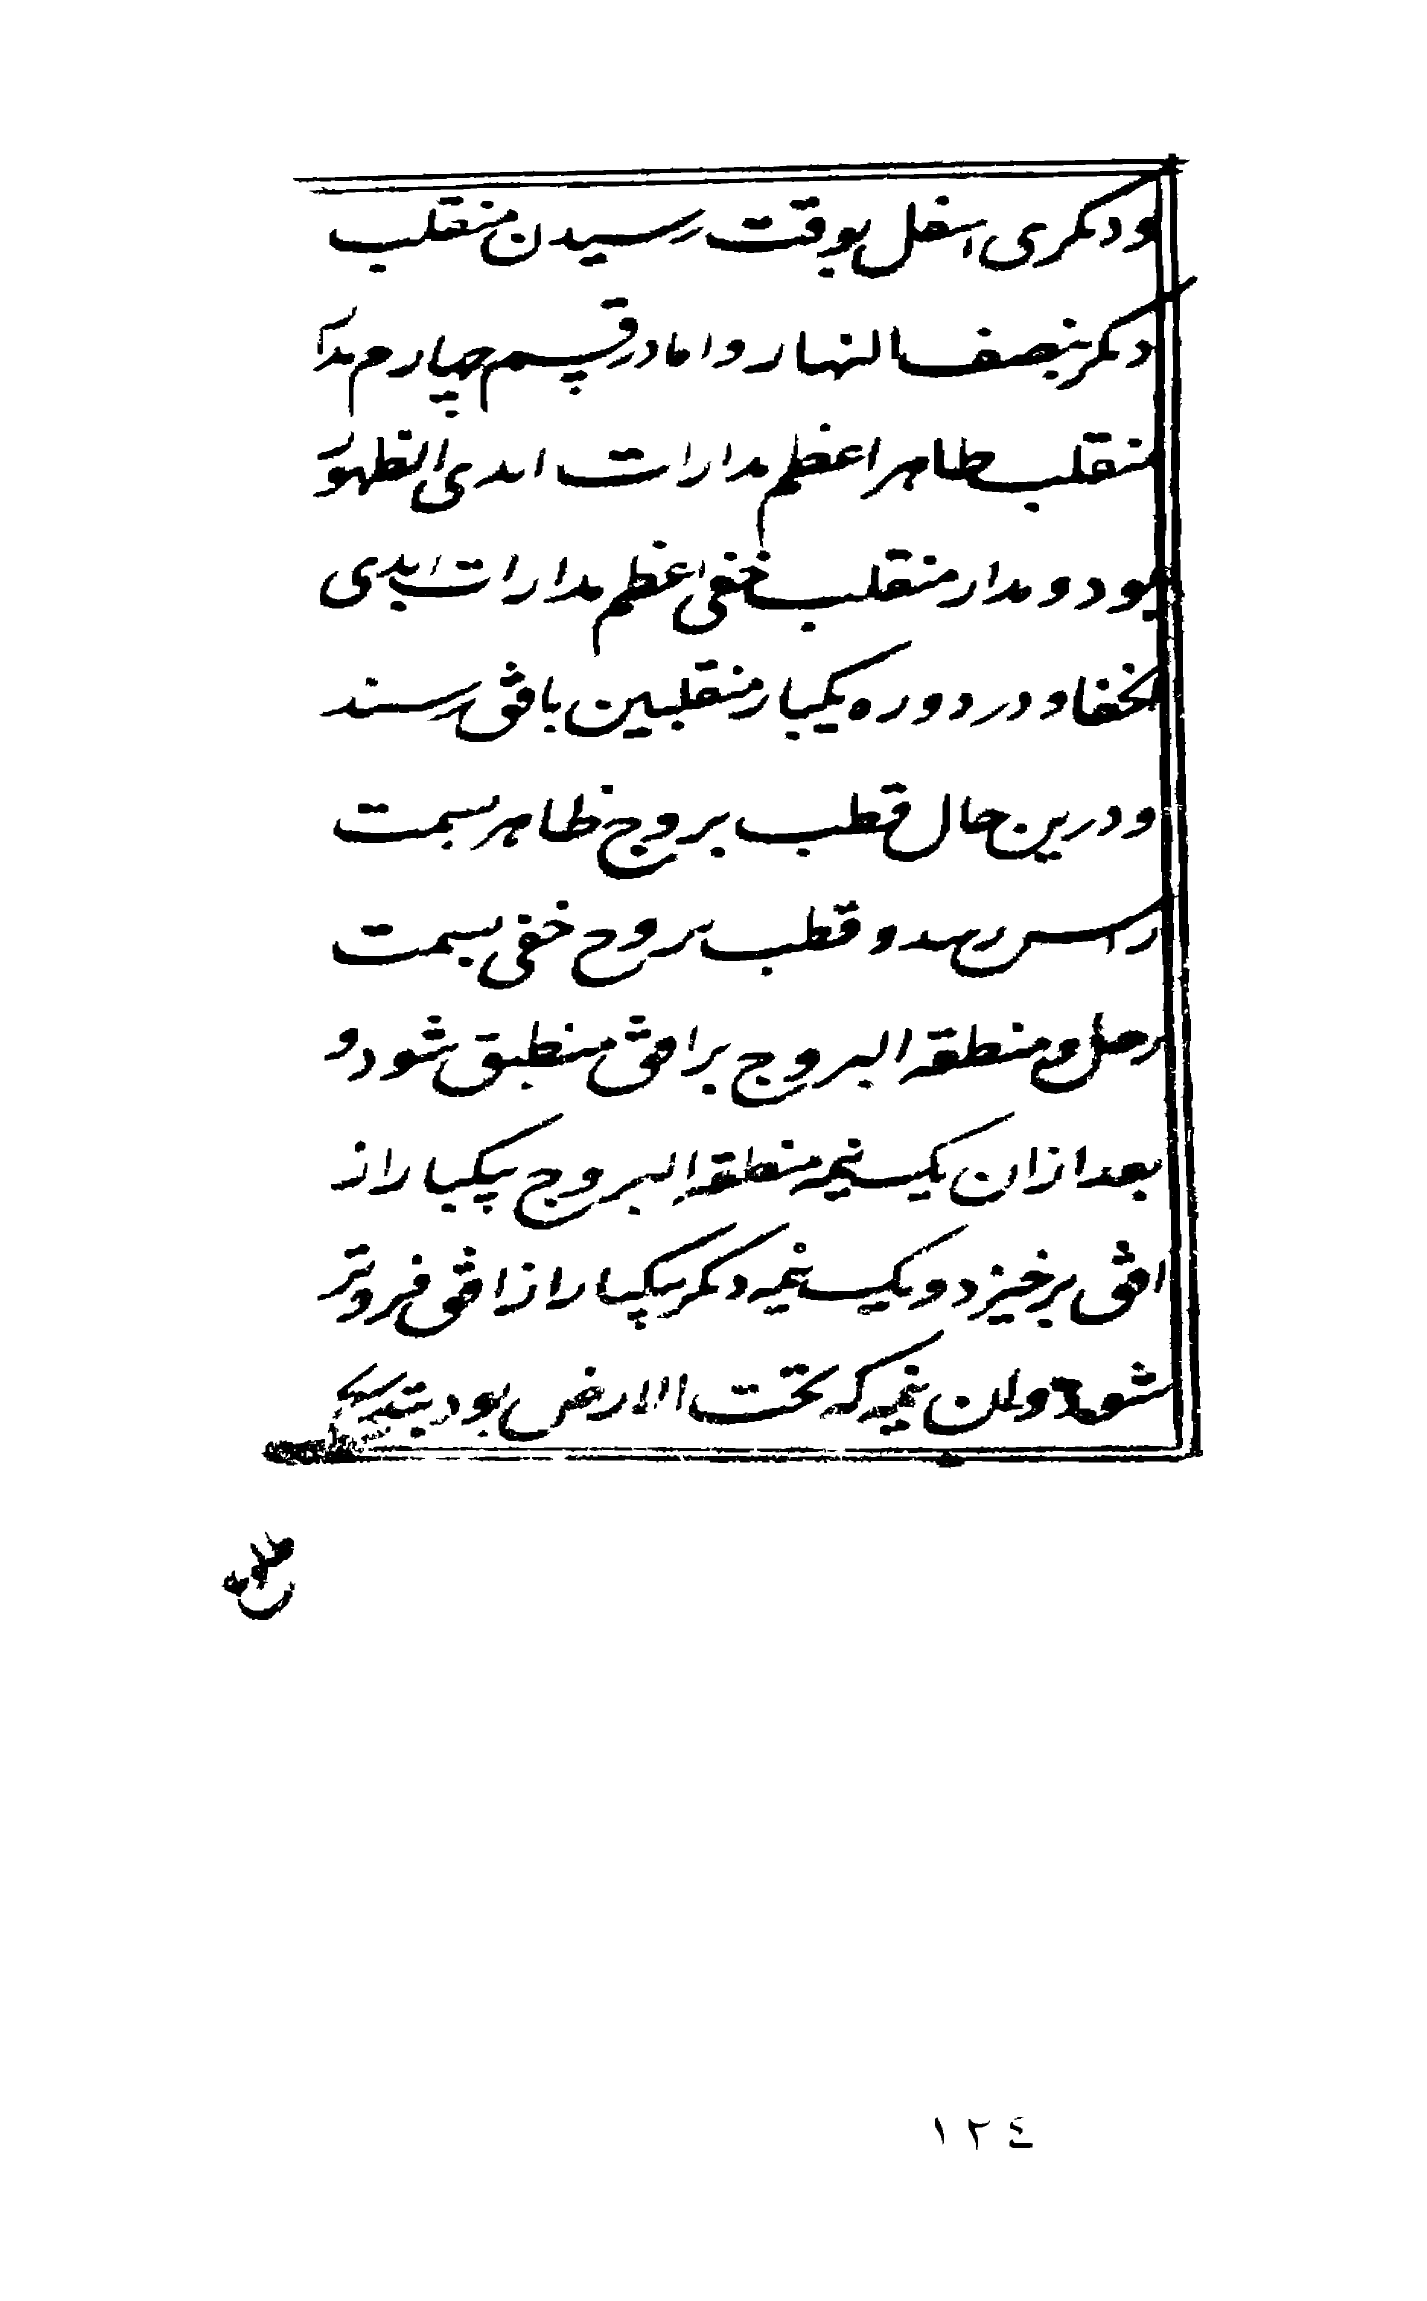 ودکری اسفل بوقت رسیدن منقلب
دکر بنصف النهار و اما در قسم چهارم مدار
منقلب ظاهر اعظم مدارات ابدی الظهور
بود و مدار منقلب خفی اعظم مدارات ابدی
لخفا و در دوره یکبار منقلبین بافق رسند
و درین حال قطب بروج ظاهر بسمت
راس رسد و قطب بروج خفی بسمت
رجل و منطقه البروج بر افق منطبق شود و
بعد ازان یک نیمه منطقه البروج بیکبار از
افق برخیزد و یک نیمه دکر بیکبار از افق فروتر
شود و ان نیمه که تحت الارض بود بتدریج
طلوع
١٢٤